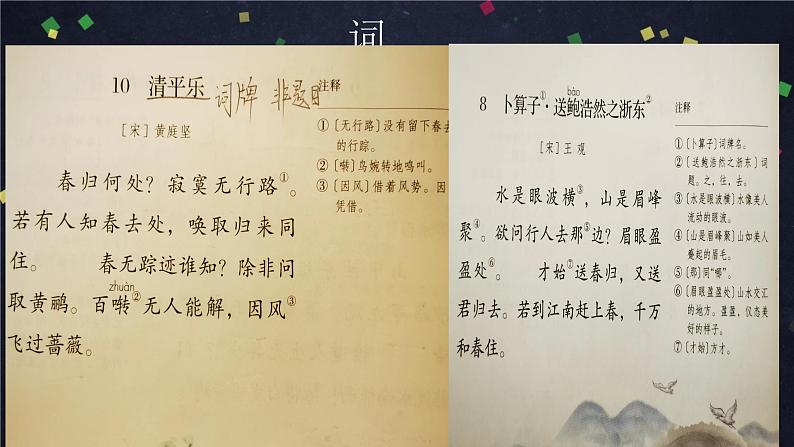 词
10 清平乐 词牌 非题目
[宋] 黄庭坚
春归何处？寂寞无行路①。
若有人知春去处，唤取归来同
住。　　春无踪迹谁知？除非问
zhuàn
取黄鹂。百啭②无人能解，因风③
飞过蔷薇。
注释
①〔无行路〕没有留下春去
的行踪。
②〔啭〕鸟婉转地鸣叫。
③〔因风〕借着风势。因
凭借。
bào
8 卜算子①·送鲍浩然之浙东②
[宋] 王 观
水是眼波横③，山是眉峰
聚④。欲问行人去那⑤边？眉眼盈
盈处⑥。　　才始⑦送春归，又送
君归去。若到江南赶上春，千万
和春住。
注释
①〔卜算子〕词牌名。
②〔送鲍浩然之浙东〕词
题。之，往，去。
③〔水是眼波横〕水像美人
流动的眼波。
④〔山是眉峰聚〕山如美人
蹙起的眉毛。
⑤〔那〕同“哪”。
⑥〔眉眼盈盈处〕山水交汇
的地方。盈盈，仪态美
好的样子。
⑦〔才始〕方才。